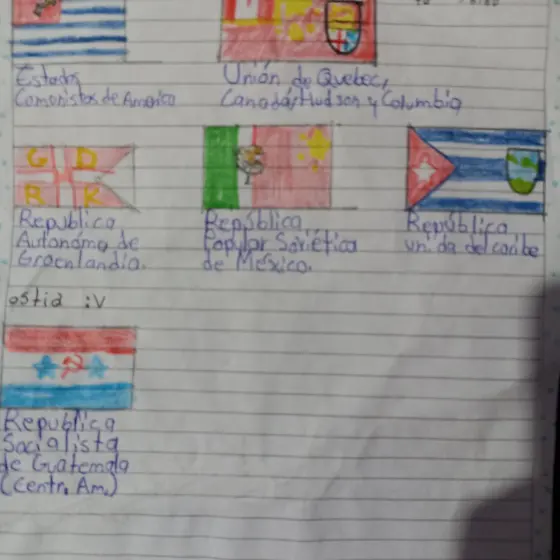 Estados
Comonistas de America
Unión de Quebec,
Canadá, Hudson y Columbia
G D
R K
Republica
Autonóma de
Groenlandia.
República
Popular Soviética
de México.
República
unida del caribe
ostia :v
Republica
Socialista
de Guatemala
(Centr. Am.)